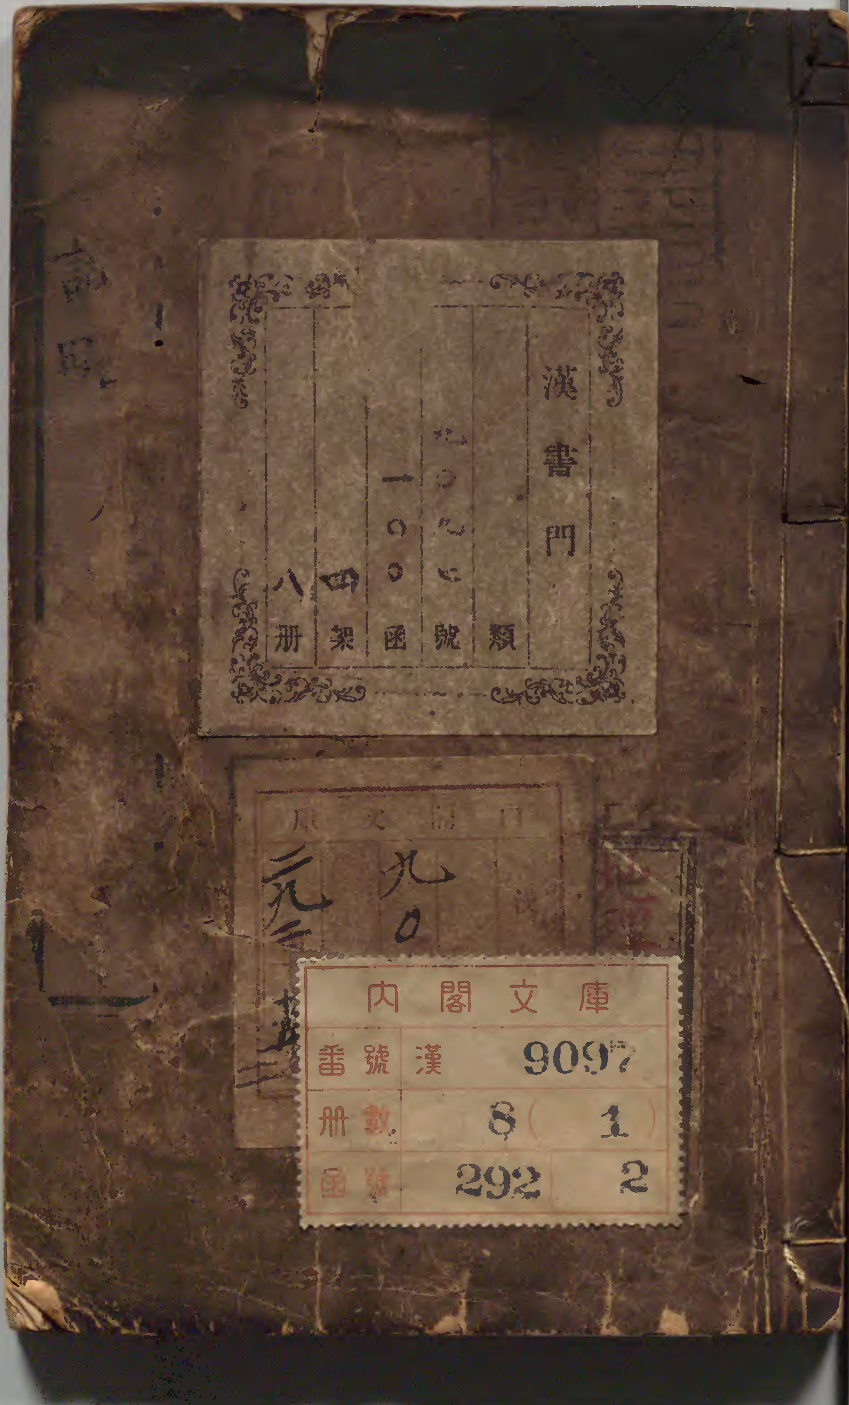 漢書門
類
九〇九七號
一〇〇函
四架
八册
九〇
二九二
內閣文庫
番號 漢 9097
册數 8 ( 1 )
函號 292 2